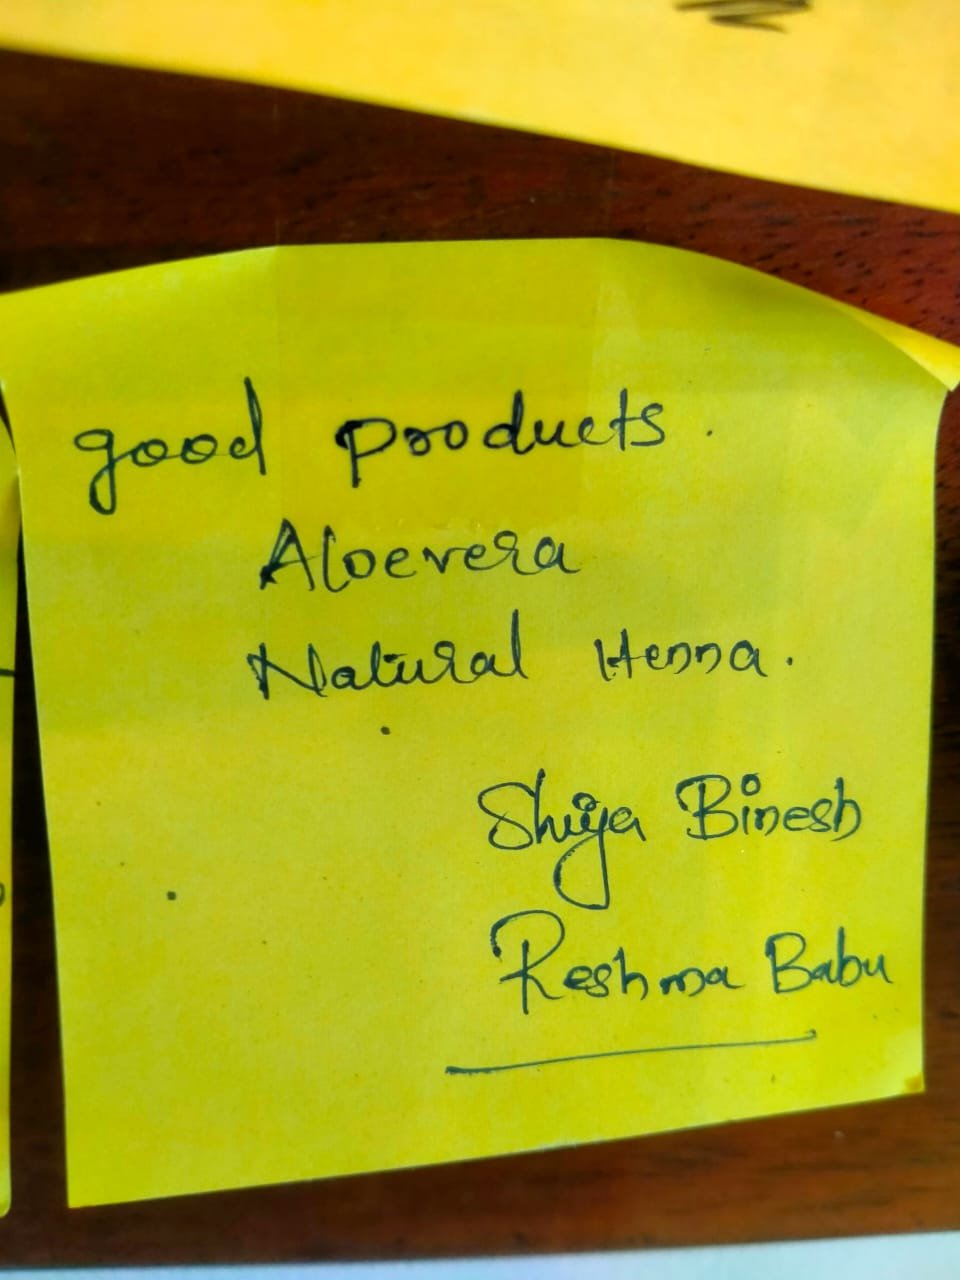 good products.
Aloevera
Natural Henna.
Shija Binesh
Reshma Babu